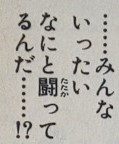 ……みんな
いったい
なにと闘って
るんだ……!?
たたか